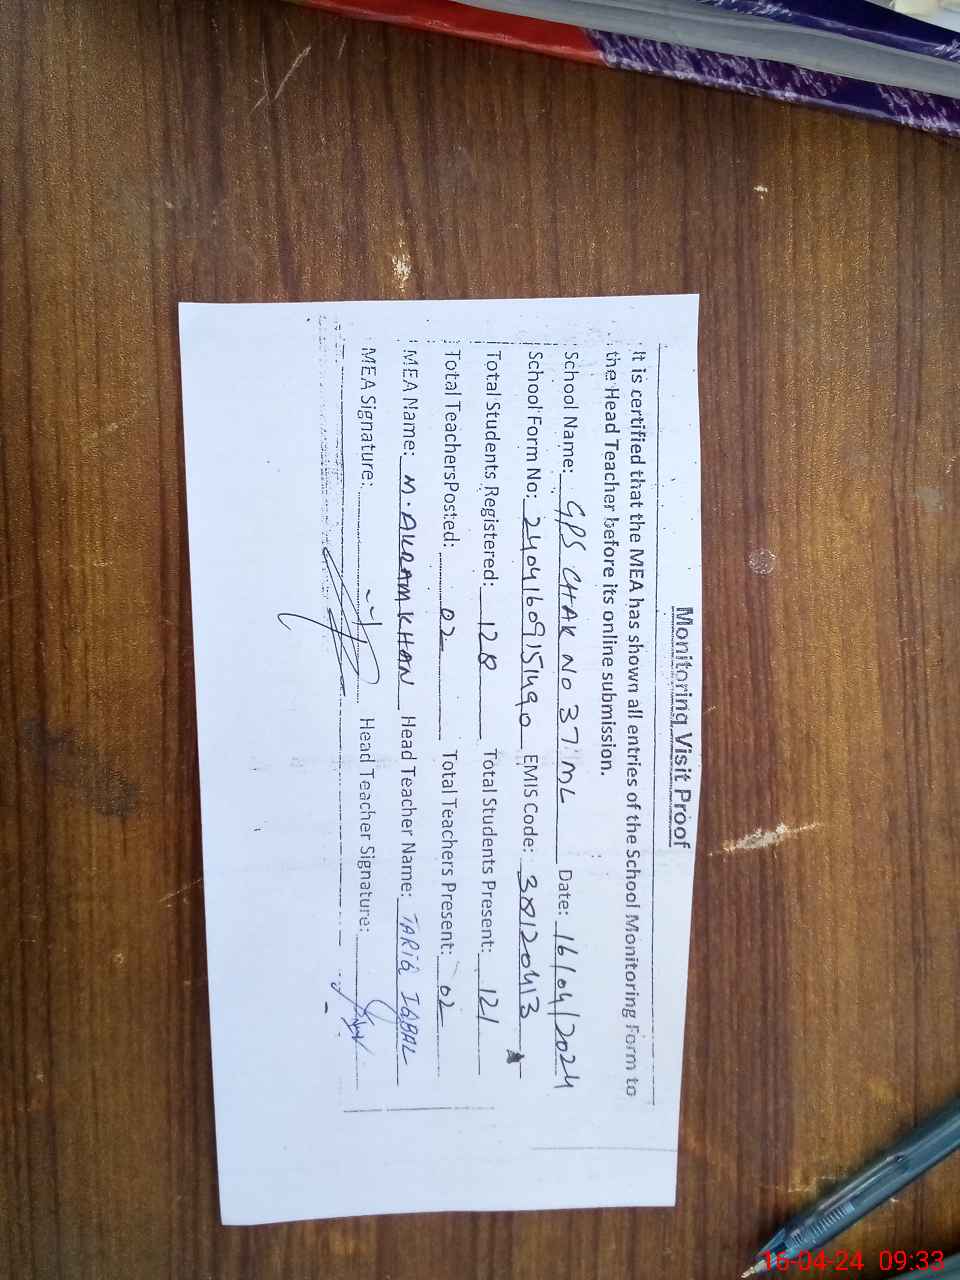 Monitoring Visit Proof
It is certified that the MEA has shown all entries of the School Monitoring Form to
the Head Teacher before its online submission.
School Name: GPS CHAK NO 37 ML Date: 16/04/2024
School Form No: 2404160915490 EMIS Code: 38120413
Total Students Registered: 128 Total Students Present: 121
Total TeachersPosted: 02 Total Teachers Present: 02
MEA Name: M. AKRAM KHAN Head Teacher Name: TARIQ IQBAL
MEA Signature: Head Teacher Signature:
16-04-24 09:33